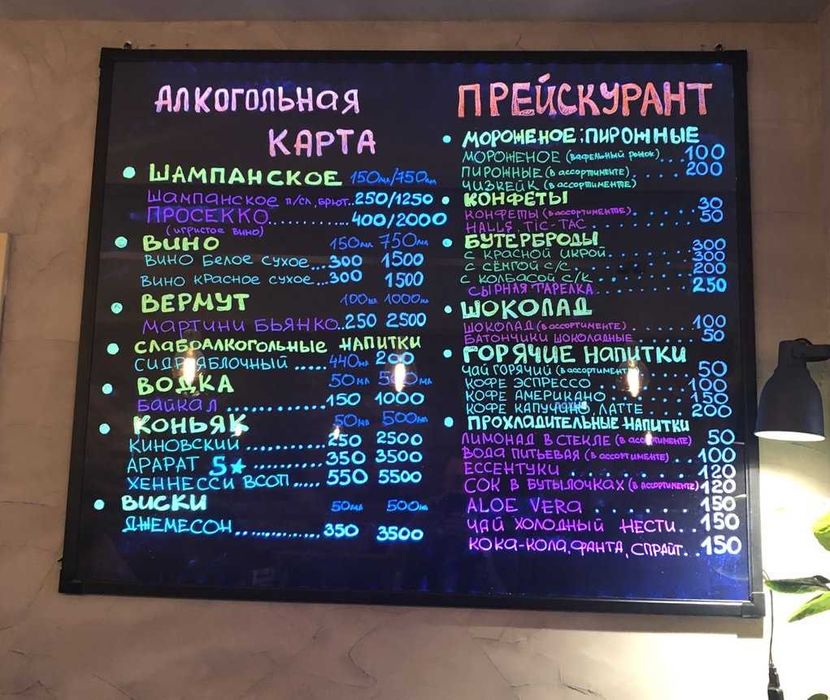 АЛКОГОЛЬНАЯ
КАРТА
ШАМПАНСКОЕ 150мл/750мл
ШАМПАНСКОЕ П/СЛ, БРЮТ..250/1250
ПРОСЕККО............400/2000
(ИГРИСТОЕ ВИНО)
ВИНО 150мл 750мл
ВИНО БЕЛОЕ СУХОЕ...300 1500
ВИНО КРАСНОЕ СУХОЕ...300 1500
ВЕРМУТ 100мл 1000мл
МАРТИНИ БЬЯНКО.250 2500
СЛАБОАЛКОГОЛЬНЫЕ НАПИТКИ
СИДР ЯБЛОЧНЫЙ .....440мл 200
ВОДКА 50мл 500мл
БАЙКАЛ ............150 1000
КОНЬЯК 50мл 500мл
КИНОВСКИЙ ..........250 2500
АРАРАТ 5★ ...........350 3500
ХЕННЕССИ ВСОП .....550 5500
ВИСКИ 50мл 500мл
ДЖЕМЕСОН.............350 3500
ПРЕЙСКУРАНТ
МОРОЖЕНОЕ;ПИРОЖНЫЕ
МОРОЖЕНОЕ (ВАФЕЛЬНЫЙ РОЖОК)...100
ПИРОЖНЫЕ (В АССОРТИМЕНТЕ)....200
ЧИЗКЕЙК (В АССОРТИМЕНТЕ)
КОНФЕТЫ
КОНФЕТЫ (В АССОРТИМЕНТЕ)......30
HALLS, TIC-TAC.......50
БУТЕРБРОДЫ
С КРАСНОЙ ИКРОЙ......300
С СЁМГОЙ С/С.......300
С КОЛБАСОЙ С/К......200
СЫРНАЯ ТАРЕЛКА......250
ШОКОЛАД
ШОКОЛАД (В АССОРТИМЕНТЕ)....100
БАТОНЧИКИ ШОКОЛАДНЫЕ.....50
ГОРЯЧИЕ НАПИТКИ
ЧАЙ ГОРЯЧИЙ (В АССОРТИМЕНТЕ)...50
КОФЕ ЭСПРЕССО.......100
КОФЕ АМЕРИКАНО......150
КОФЕ КАПУЧИНО, ЛАТТЕ...200
ПРОХЛАДИТЕЛЬНЫЕ НАПИТКИ
ЛИМОНАД В СТЕКЛЕ (В АССОРТИМЕНТЕ) 50
ВОДА ПИТЬЕВАЯ (В АССОРТИМЕНТЕ)..100
ЕССЕНТУКИ........120
СОК В БУТЫЛОЧКАХ (В АССОРТИМЕНТЕ)120
ALOE VERA........150
ЧАЙ ХОЛОДНЫЙ НЕСТИ..150
КОКА-КОЛА,ФАНТА,СПРАЙТ..150